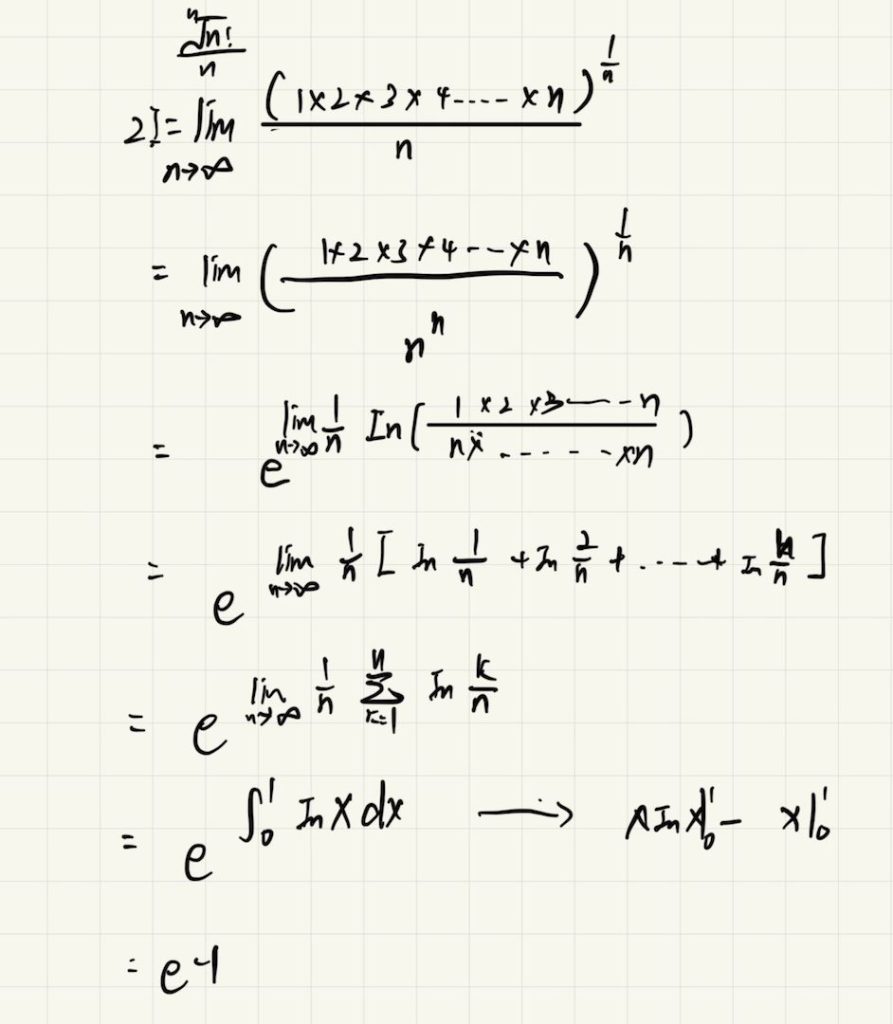 ⁿ√n! / n
2I = lim n→∞ (1×2×3×4---- ×n)^(1/n) / n
= lim n→∞ (1×2×3×4--×n / n^n)^(1/n)
= e^(lim n→∞ 1/n In(1×2×3----n / n× ------×n))
= e^(lim n→∞ 1/n [In 1/n + In 2/n + ....+ In n/n])
= e^(lim n→∞ 1/n Σ k=1 n In k/n)
= e^(∫₀¹ In x dx) → x In x|₀¹ - x|₀¹
= e^-1